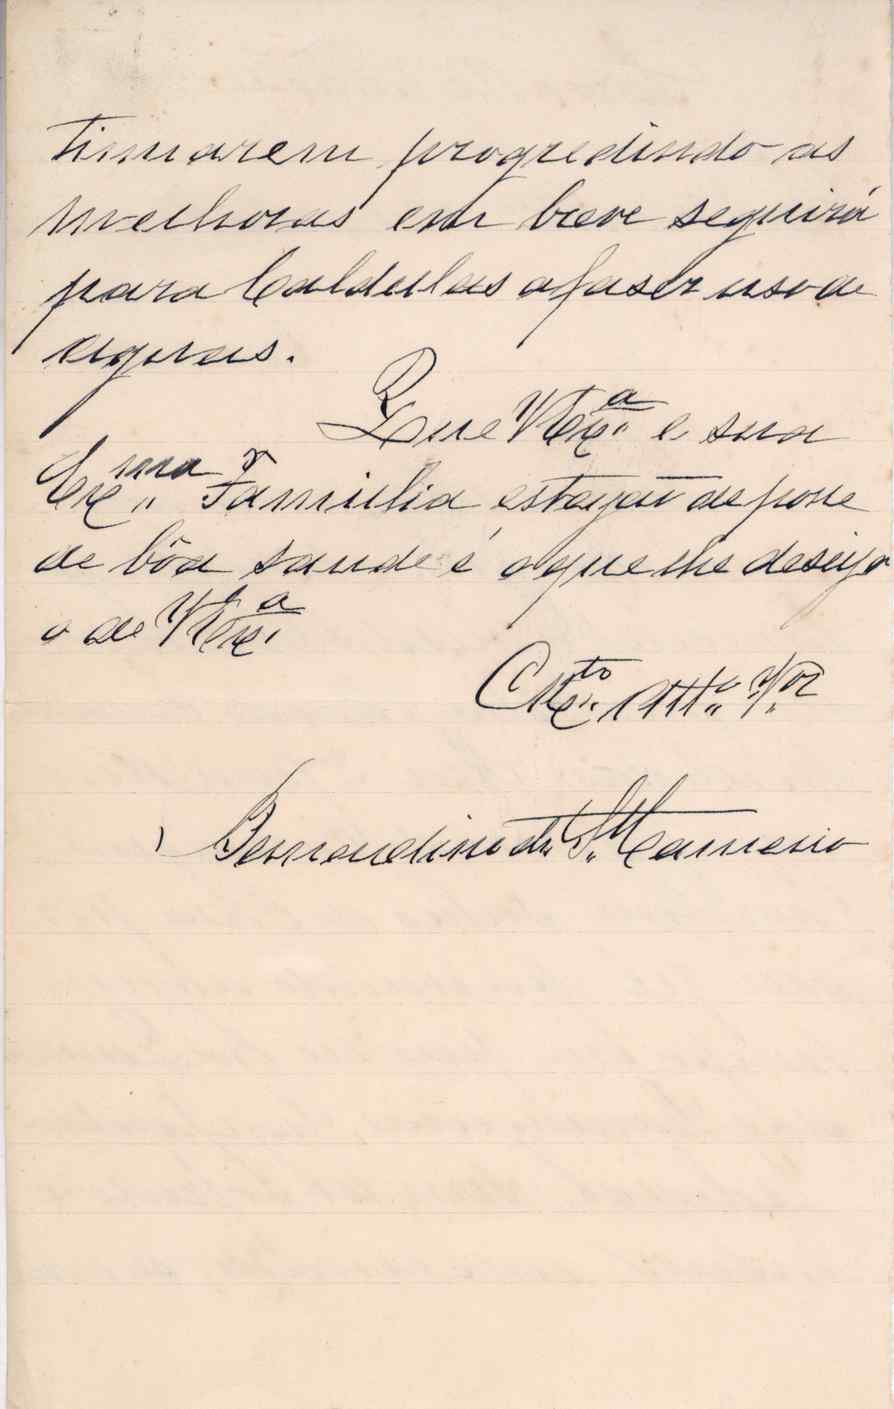 tinuarem progredindo as
melhoras em breve seguirá
para Caldellas a faser uso de
agoas.
Que V Ex.ª e sua
Ex.ma Familia estejão de posse
de bôa saude é o que lhe deseijo
o de V Ex.ª
Att.º V.or
Bernardino de S.